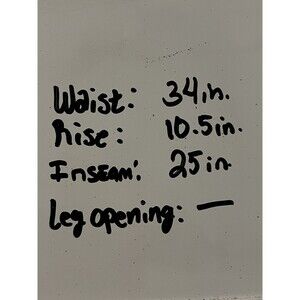 Waist: 34in.
Rise: 10.5in.
Inseam: 25in
Leg opening: —